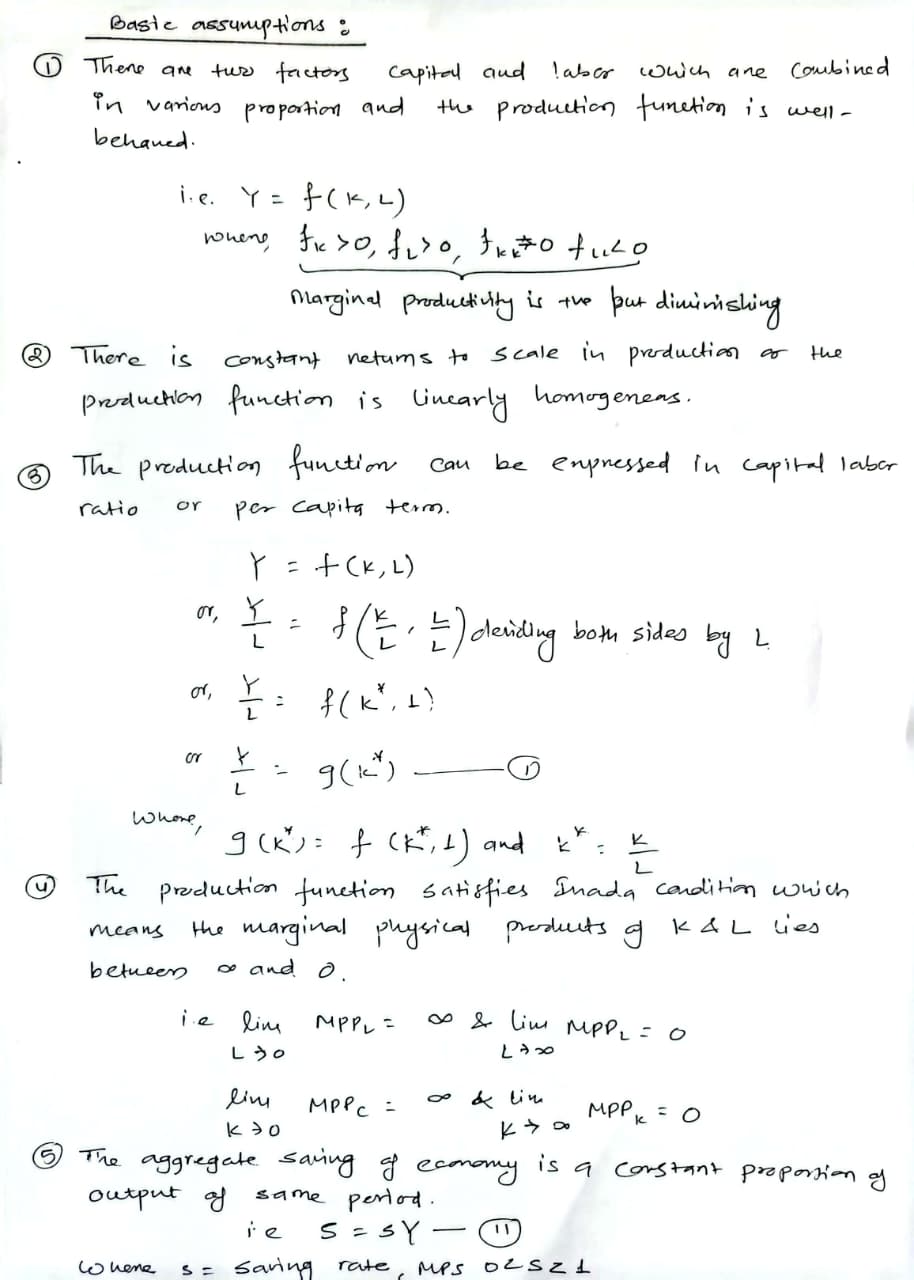 Basic assumptions :
① There are two factors capital and labor which are combined
in various proportion and the production function is well-
behaved.
i.e. Y = f(K, L)
where, f_K > 0, f_L > 0, f_KK ≠ 0 f_LL < 0
Marginal productivity is +ve but diminishing
② There is constant returns to scale in production or the
production function is linearly homogeneous.
③ The production function can be expressed in capital labor
ratio or per capita term.
Y = f(K, L)
or, Y/L = f(K/L, L/L) deviding both sides by L
or, Y/L = f(k*, 1)
or Y/L = g(k*) —— ①
Where,
g(k*) = f(k*, 1) and k* = K/L
④ The production function satisfies Inada condition which
means the marginal physical products of K & L lies
between ∞ and 0.
i.e lim L→0 MPP_L = ∞ & lim L→∞ MPP_L = 0
lim K→0 MPP_C = ∞ & lim K→∞ MPP_K = 0
⑤ The aggregate saving of economy is a constant proportion of
output of same period.
i.e S = sY — ⑪
Where s = saving rate, MPS 0<s<1